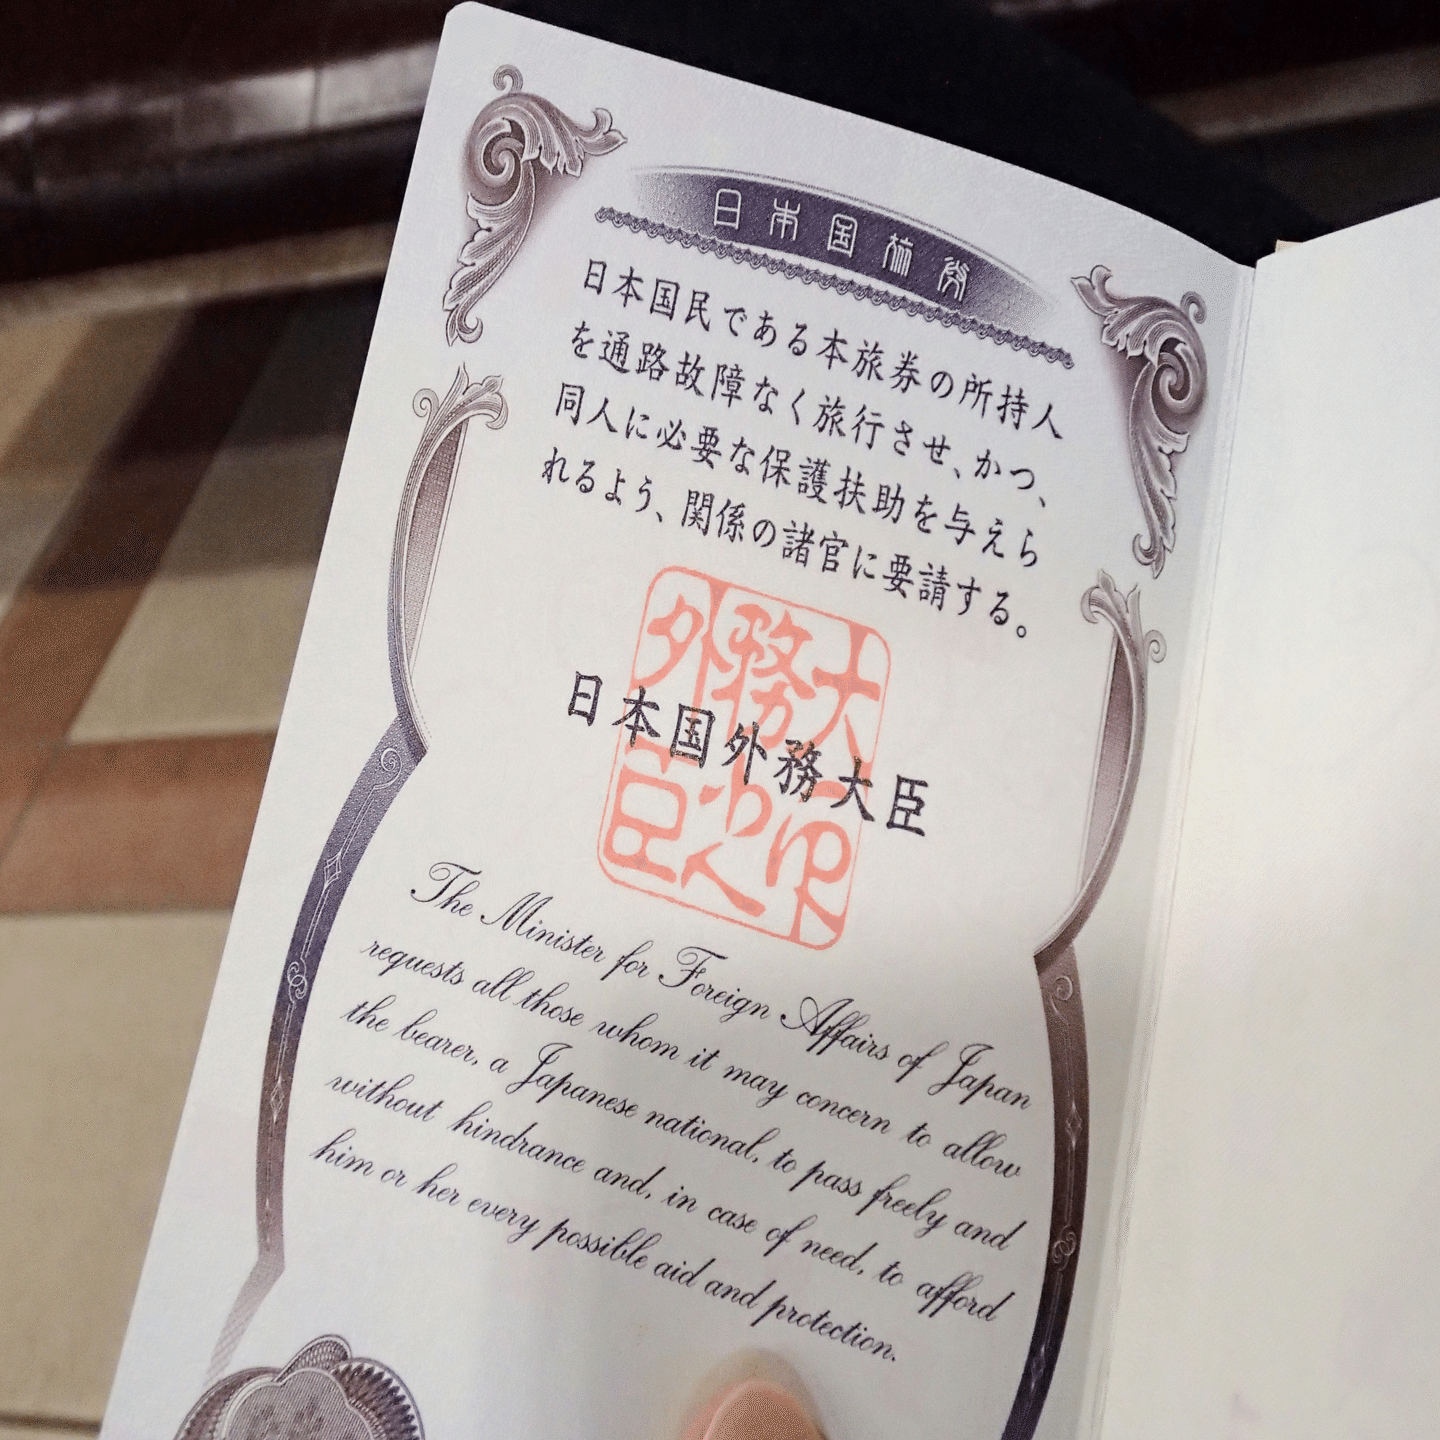 日本国旅券
日本国民である本旅券の所持人
を通路故障なく旅行させ、かつ、
同人に必要な保護扶助を与えら
れるよう、関係の諸官に要請する。
日本国外務大臣
The Minister for Foreign Affairs of Japan
requests all those whom it may concern to allow
the bearer, a Japanese national, to pass freely and
without hindrance and, in case of need, to afford
him or her every possible aid and protection.